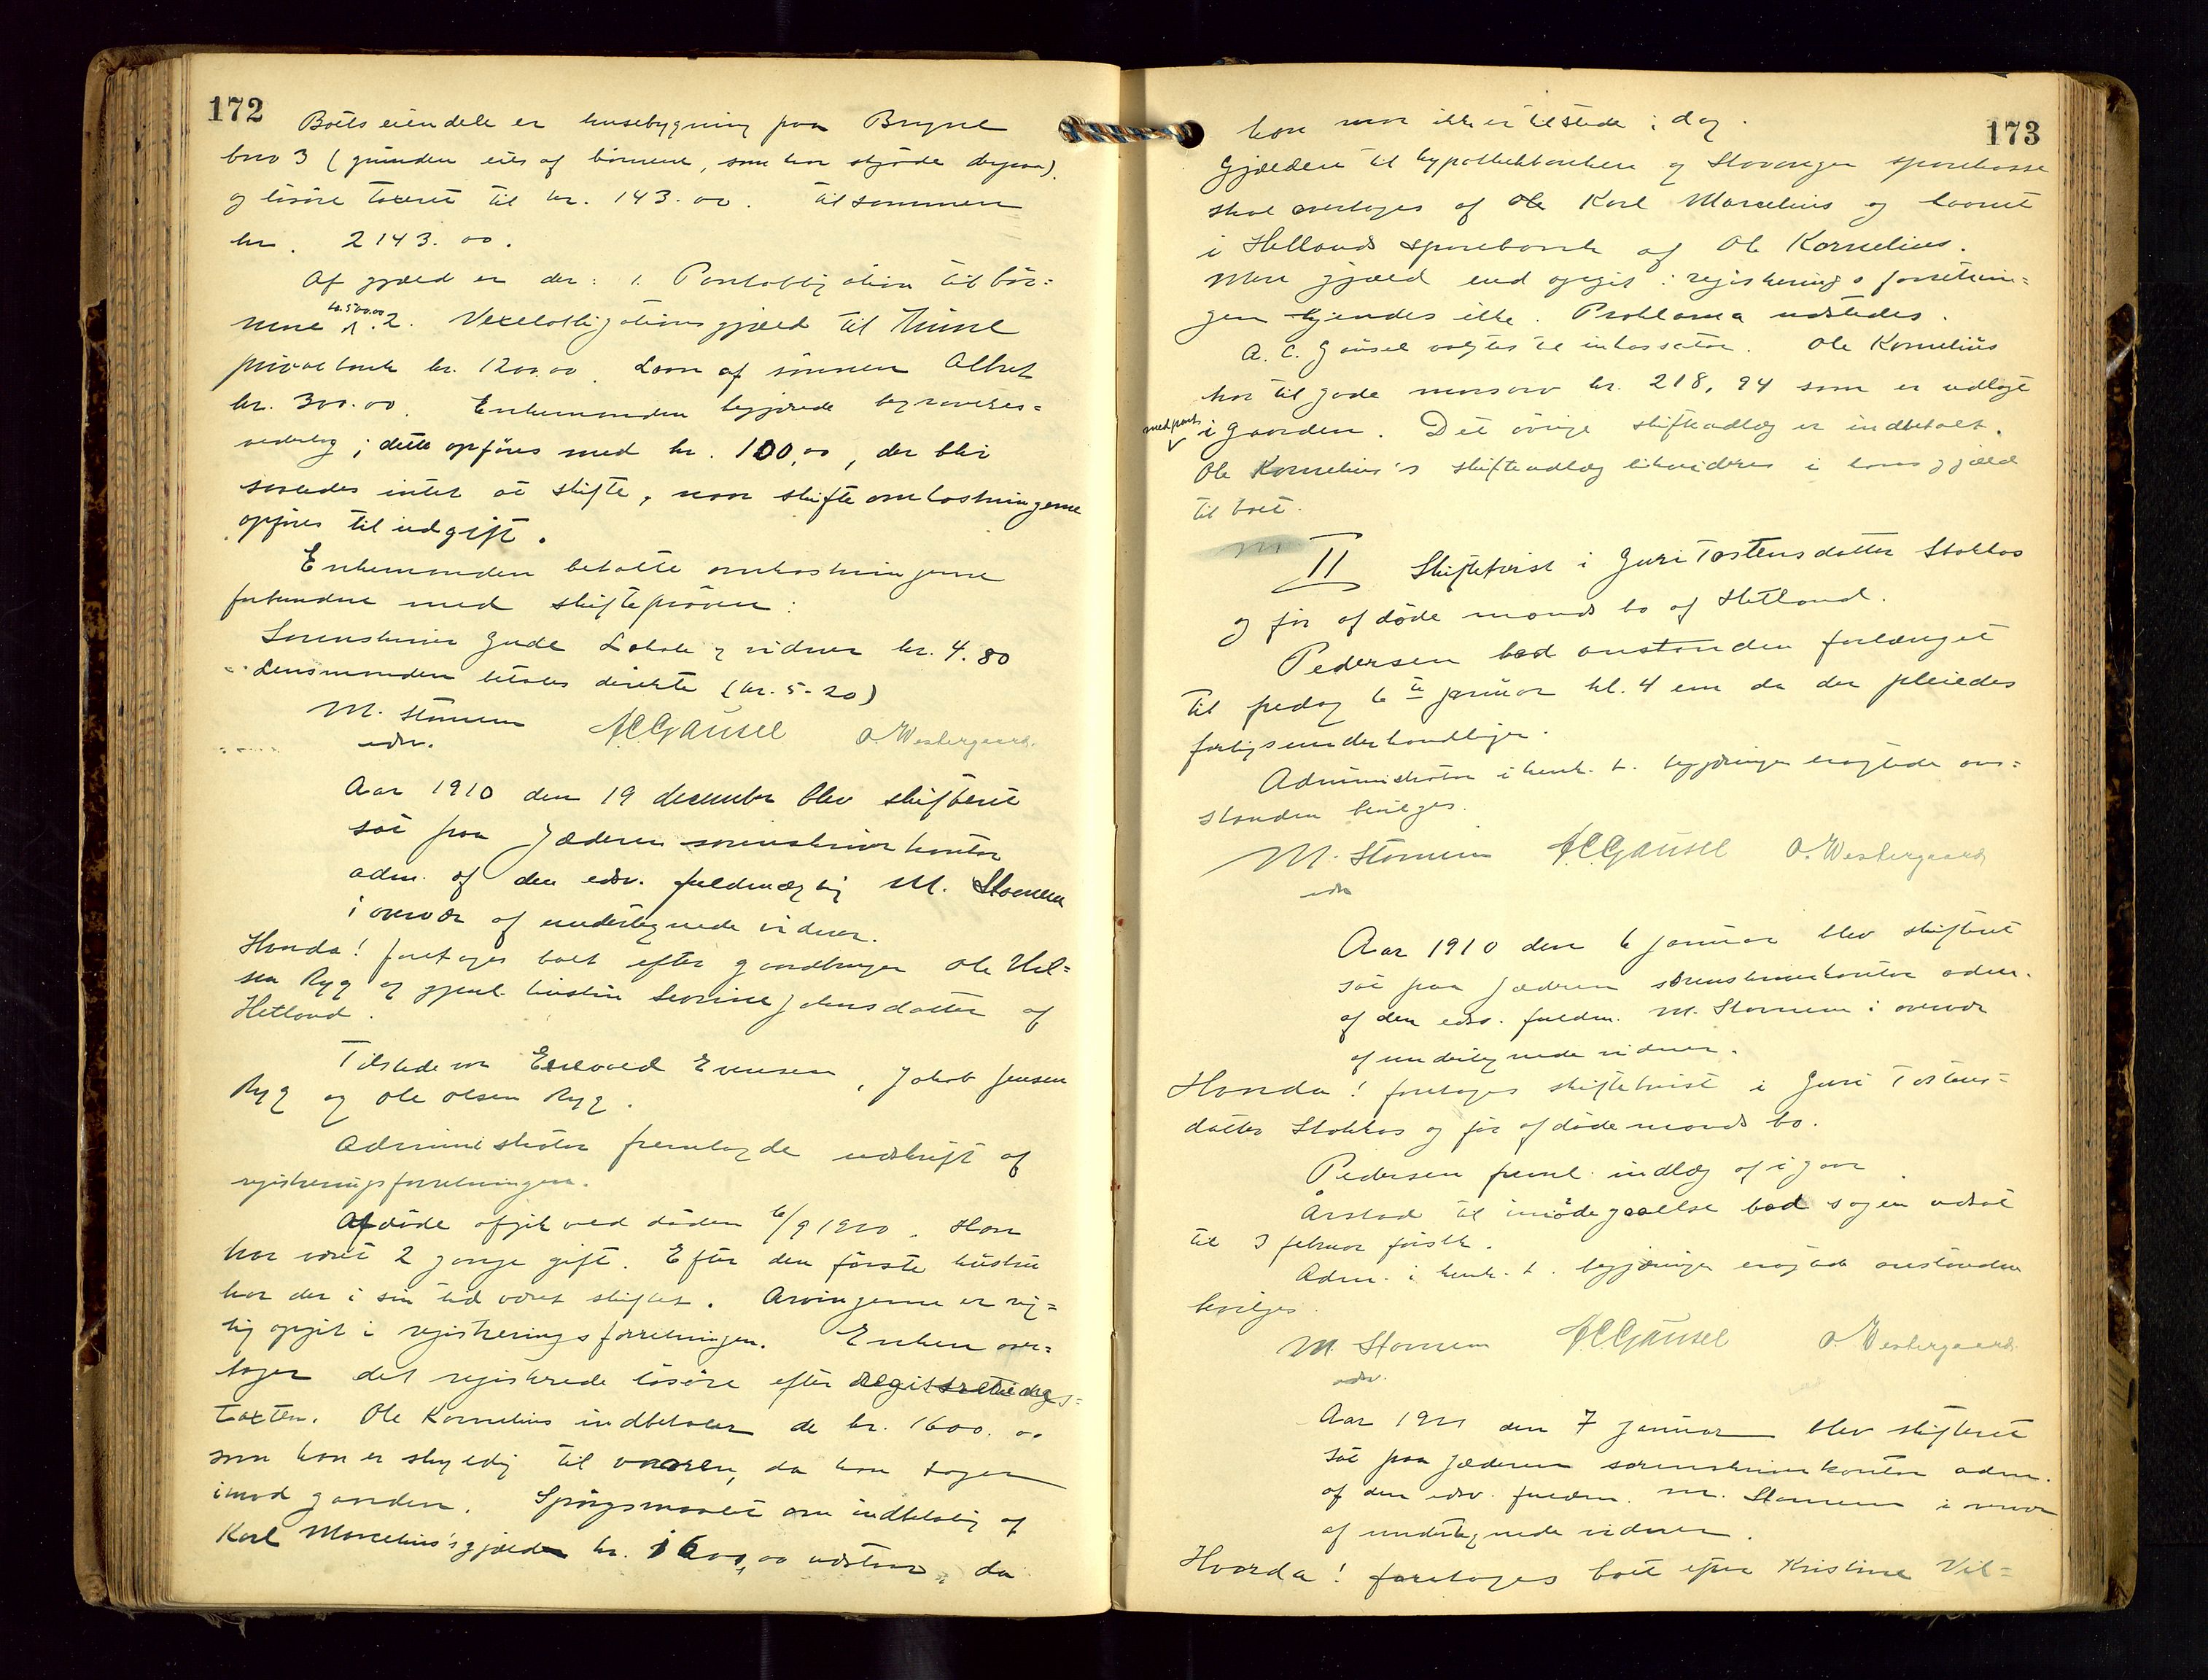 172
Boets eiendele er husebygning paa Bryne
bno 3 (grunden eies af börnene, som har skjöde derpaa)
og lösöre taxeret til kr. 143.00. Tilsammen
kr. 2143.00.
Af gjæld er der: 1. Pantobligation til bör=
nene kr. 500.00. 2. Vexelobligationsgjæld til Thime
privatbank kr. 1200.00. Laan af sönnen Albret
kr. 300.00. Enkemanden begjærede begravelses=
vederlag; dette opföres med kr. 100,00, der blir
saaledes intet at skifte, naar skifteomkostningerne
opföres til udgift.
Enkemanden betalte omkostningerne
forbundne med skiftepröven:
Sorenskriver Gude Lokale & vidner kr. 4.80
Lensmanden betales direkte (kr. 5-20)
M. Stornem A.C. Gausel O. Westergaard
edsv.
Aar 1910 den 19 december blev skifteret
sat paa Jæderen sorenskriverkontor
adm. af den edsv. fuldmægtig M. Stornem
i overvær af undertegnede vidner.
Hvorda! foretages boet efter gaardbruger Ole Niel=
sen Ryg og gjenl. hustru Severine Johnsdatter af
Hetland.
Tilstede var Enevald Evensen, Jakob Jensen
Ryg og Ole Olsen Ryg.
Administrator fremlagde udskrift af
registreringsforretningen.
Afdöde afgik ved döden 6/9 1910. Han
har været 2 gange gift. Efter den förste hustru
har der i sin tid været skiftet. Arvingerne er rig=
tig opgit i registreringsforretningen. Enken over=
tager det registrerede lösöre efter registrerings=
taxten. Ole Kornelius indbetaler de kr. 1600.00
som han er skyldig til vaaren, da han tager
imod gaarden. Spörgsmaalet om indbetaling af
Karl Marcelius's gjæld kr. 1600,00 udstaar, da
173
han ikke er tilstede i dag.
Gjælden til hypothekbanken og Stavanger sparekasse
skal overtages af Karl Marcelius og laanet
i Hetlands sparebank af Ole Kornelius.
Mere gjæld end opgit i registreringsforretnin=
gen kjendes ikke. Proklama udstedes.
A. C. Gausel valgtes til inkassator. Ole Kornelius
har til gode morsarv kr. 218,94 som er udlagt
med pant i gaarden. Det övrige skifteudlæg er indbetalt.
Ole Kornelius's skifteudlæg likvideres i hans gjæld
til boet.
II Skiftetvist i Guri Tostensdatter Stokkas
og för afdöde mands bo af Hetland.
Pedersen bad anstanden forlænget
til fredag 6te januar kl. 4 em da der pleiedes
forligsunderhandlinger.
Administrator i henh. t. begjæringen eragtede an=
standen bevilges.
M. Stornem A.C. Gausel O. Westergaard
edsv
Aar 1910 den 6 januar blev skifteret
sat paa Jæderen sorenskriverkontor adm.
af den edsv. fuldm. M. Stornem i overvær
af undertegnede vidner.
Hvorda! foretages skiftetvist i Guri Tostens=
datter Stokkas og för afdöde mands bo.
Pedersen freml. indlæg af igaar
Årstad til imödegaaelse bad sagen udsat
til 3 februar förstk.
Adm. i henh. t. begjæringen eragted anstanden
bevilges.
M. Stornem A.C. Gausel O. Westergaard
edsv.
Aar 1911 den 7 januar blev skifteret
sat paa Jæderen sorenskriverkontor adm.
af den edsv. fuldm. M. Stornem i overvær
af undertegnede vidner.
Hvorda! foretages boet efter Kristine Vil=